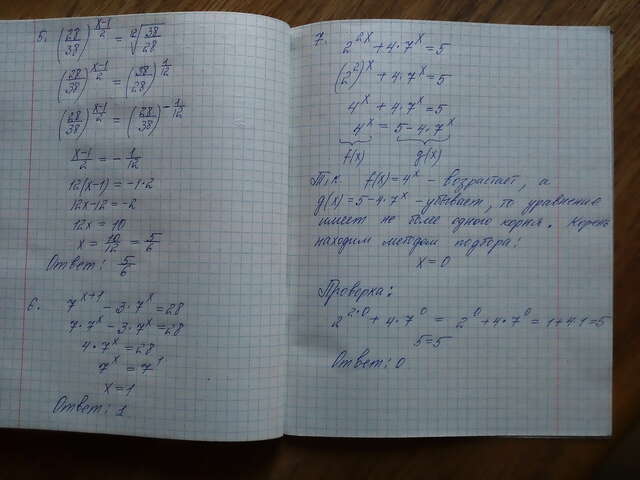 5. (28/38)^((x-1)/2) = ¹²√(38/28)
(28/38)^((x-1)/2) = (38/28)^(1/12)
(28/38)^((x-1)/2) = (28/38)^(-1/12)
(x-1)/2 = -1/12
12(x-1) = -1·2
12x-12 = -2
12x = 10
x = 10/12 = 5/6
Ответ: 5/6
6. 7^(x+1) - 3·7^x = 28
7·7^x - 3·7^x = 28
4·7^x = 28
7^x = 7^1
x = 1
Ответ: 1
7. 2^(2x) + 4·7^x = 5
(2^2)^x + 4·7^x = 5
4^x + 4·7^x = 5
4^x = 5-4·7^x
f(x) g(x)
Т.к. f(x) = 4^x - возрастает, а
g(x) = 5-4·7^x - убывает, то уравнение
имеет не более одного корня. Корень
находим методом подбора:
x = 0
Проверка:
2^(2·0) + 4·7^0 = 2^0 + 4·7^0 = 1+4·1=5
5=5
Ответ: 0